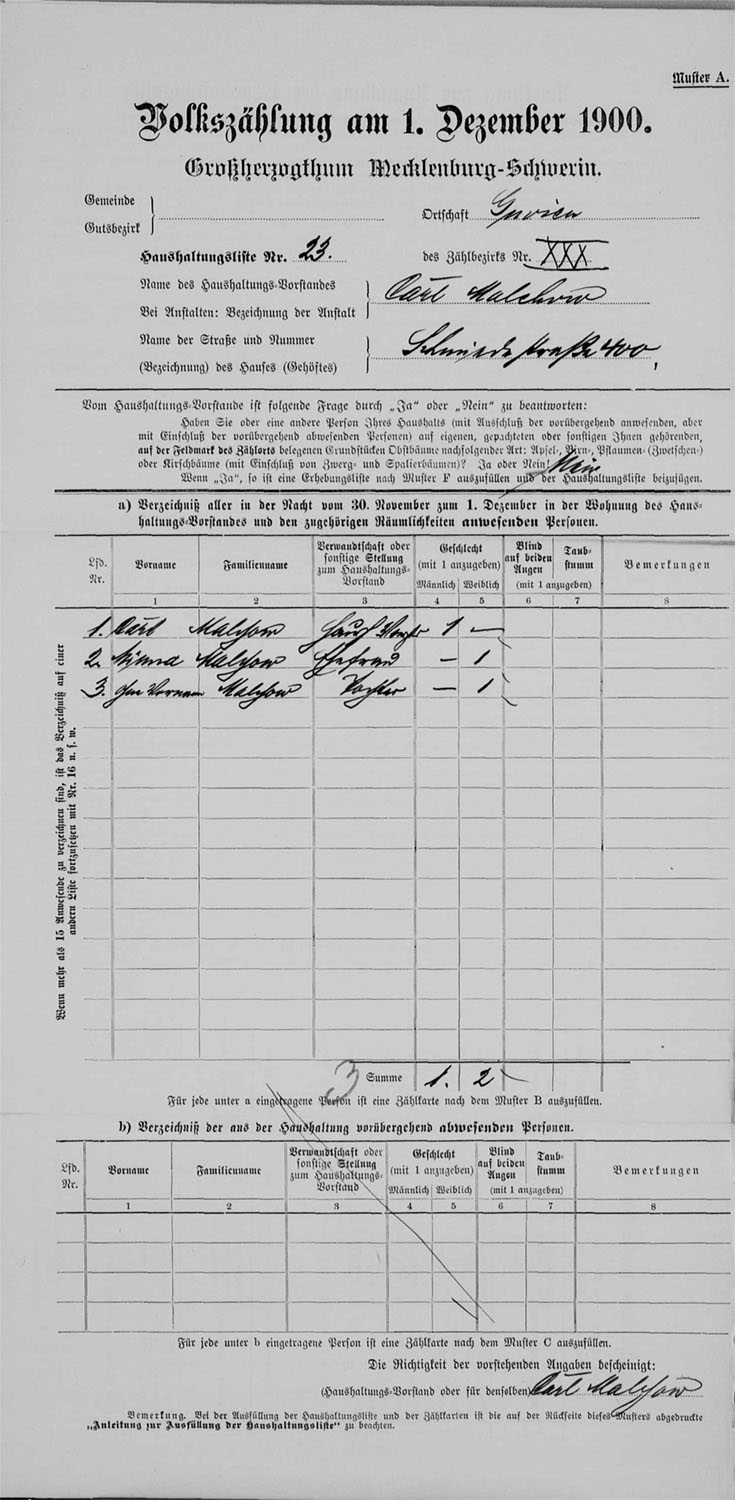 Muster A.
Volkszählung am 1. Dezember 1900.
Großherzogthum Mecklenburg-Schwerin.
Gemeinde
Gutsbezirk
Ortschaft Gnoien
Haushaltungsliste Nr. 23. des Zählbezirks Nr. XXX
Name des Haushaltungs-Vorstandes
Bei Anstalten: Bezeichnung der Anstalt
Carl Malchow
Name der Straße und Nummer
(Bezeichnung) des Hauses (Gehöftes)
Schmiedestraße 400,
Vom Haushaltungs-Vorstande ist folgende Frage durch „Ja“ oder „Nein“ zu beantworten:
Haben Sie oder eine andere Person Ihres Haushalts (mit Ausschluß der vorübergehend anwesenden, aber
mit Einschluß der vorübergehend abwesenden Personen) auf eigenen, gepachteten oder sonstigen Ihnen gehörenden,
auf der Feldmark des Zählorts belegenen Grundstücken Obstbäume nachfolgender Art: Apfel-, Birn-, Pflaumen- (Zwetschen-)
oder Kirschbäume (mit Einschluß von Zwerg- und Spalierbäumen)? Ja oder Nein! Nein
Wenn „Ja“, so ist eine Erhebungsliste nach Muster F auszufüllen und der Haushaltungsliste beizufügen.
a) Verzeichniß aller in der Nacht vom 30. November zum 1. Dezember in der Wohnung des Haus-
haltungs-Vorstandes und den zugehörigen Räumlichkeiten anwesenden Personen.
Lfd. Nr.
Vorname
Familienname
Verwandtschaft oder
sonstige Stellung
zum Haushaltungs-
Vorstand
Geschlecht
(mit 1 anzugeben)
Männlich Weiblich
Blind
auf beiden
Augen
Taub-
stumm
(mit 1 anzugeben)
Bemerkungen
1 2 3 4 5 6 7 8
1. Carl Malchow 1 —
2. Malchow Ehefrau — 1
3. Malchow Tochter — 1
Wenn mehr als 15 Anwesende zu verzeichnen sind, ist das Verzeichniß auf einer
andern Liste fortzusetzen mit Nr. 16 u. s. w.
3 Summe 1. 2
Für jede unter a eingetragene Person ist eine Zählkarte nach dem Muster B auszufüllen.
b) Verzeichniß der aus der Haushaltung vorübergehend abwesenden Personen.
Lfd. Nr.
Vorname
Familienname
Verwandtschaft oder
sonstige Stellung
zum Haushaltungs-
Vorstand
Geschlecht
(mit 1 anzugeben)
Männlich Weiblich
Blind
auf beiden
Augen
Taub-
stumm
(mit 1 anzugeben)
Bemerkungen
1 2 3 4 5 6 7 8
Für jede unter b eingetragene Person ist eine Zählkarte nach dem Muster C auszufüllen.
Die Richtigkeit der vorstehenden Angaben bescheinigt:
(Haushaltungs-Vorstand oder für denselben) Carl Malchow
Bemerkung. Bei der Ausfüllung der Haushaltungsliste und der Zählkarten ist die auf der Rückseite dieses Musters abgedruckte
„Anleitung zur Ausfüllung der Haushaltungsliste“ zu beachten.